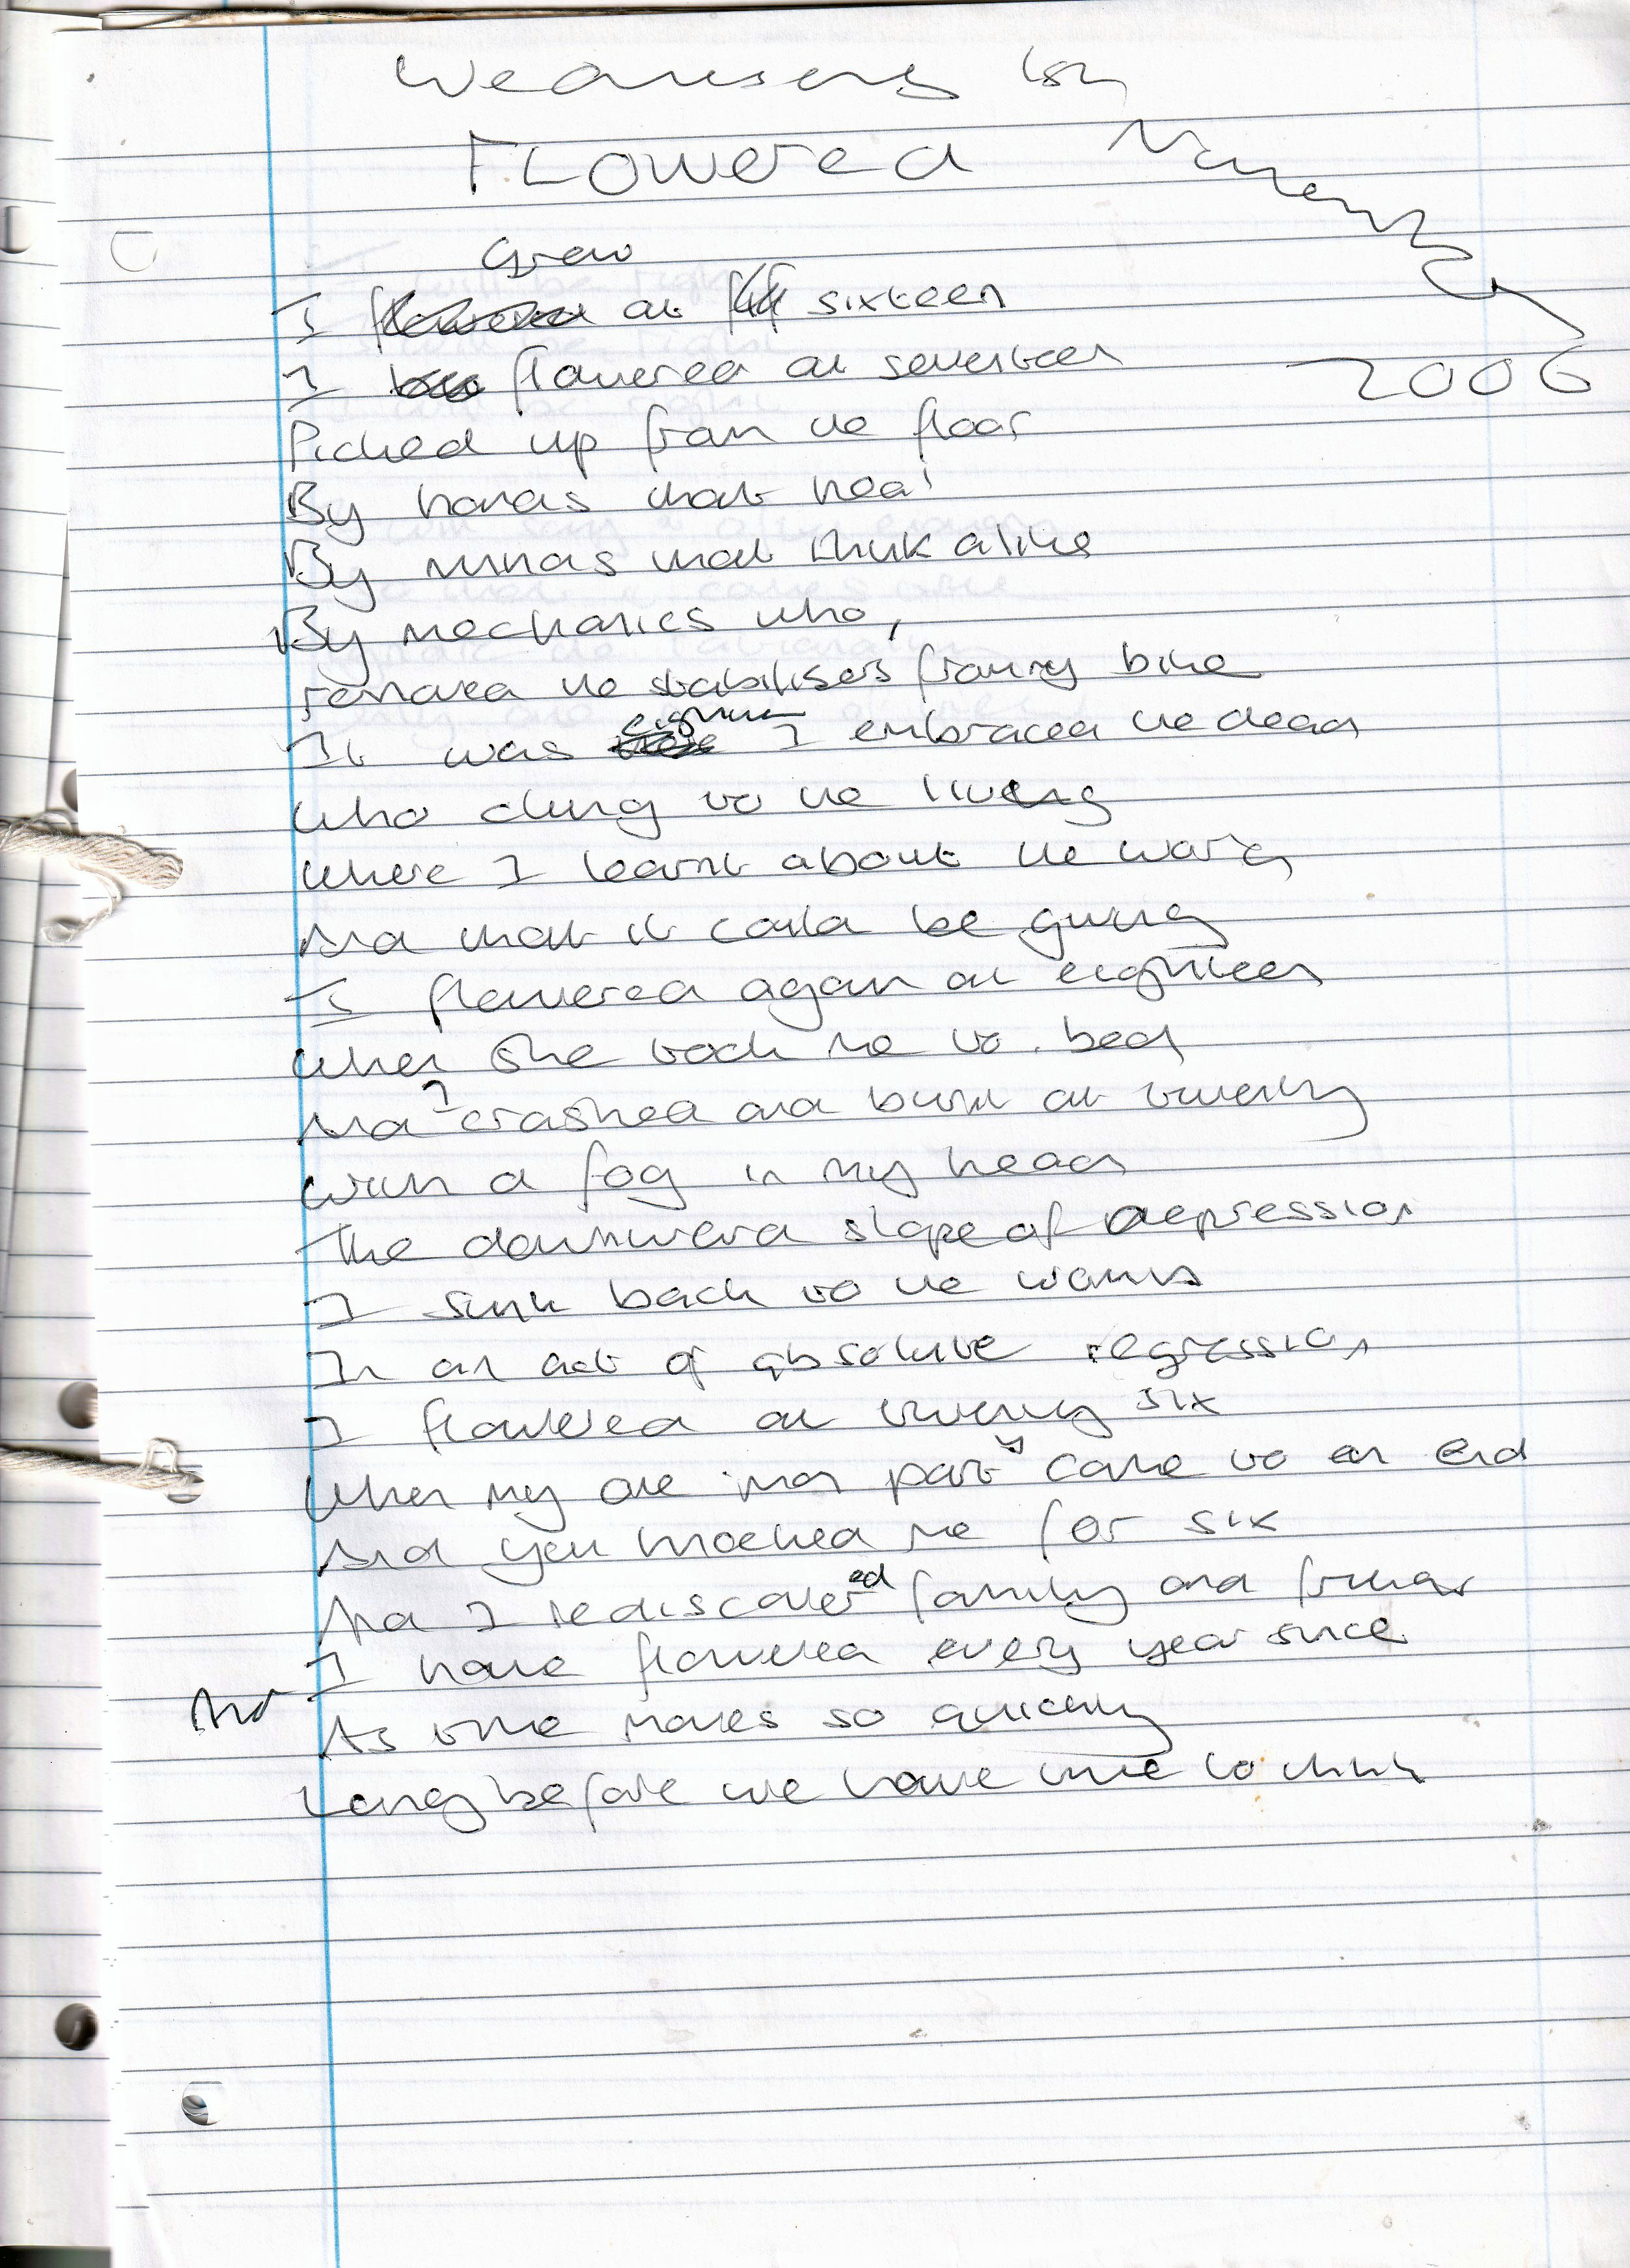 Wednesday 1st
November
2006
FLOWERED
Grew
I flowered at sixteen
I flowered at seventeen
Picked up from the floor
By hands that heal
By minds that think alike
By mechanics who,
removed the stabilisers from my bike
It was I embraced the dead
Who clung to the living
Where I learnt about the world
And that it could be giving
I flowered again at eighteen
When she took me to bed
And I crashed and burnt at twenty
With a fog in my head
The downward slope of depression
I sunk back to the womb
In an act of absolute regression
I flowered at twenty six
When my one man party came to an end
And you knocked me for six
And I rediscovered family and friends
I have flowered every year since
And
As time moves so quickly
Long before we have time to think